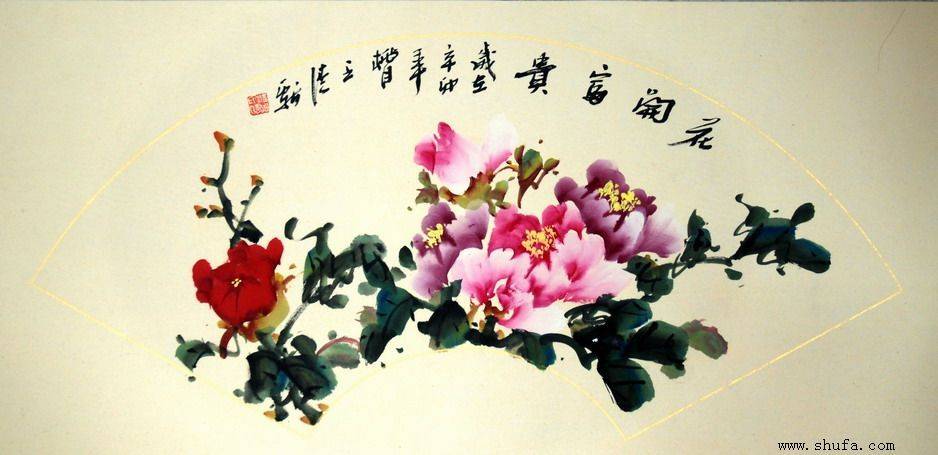 花開富貴歲在辛卯年
www.shufa.com